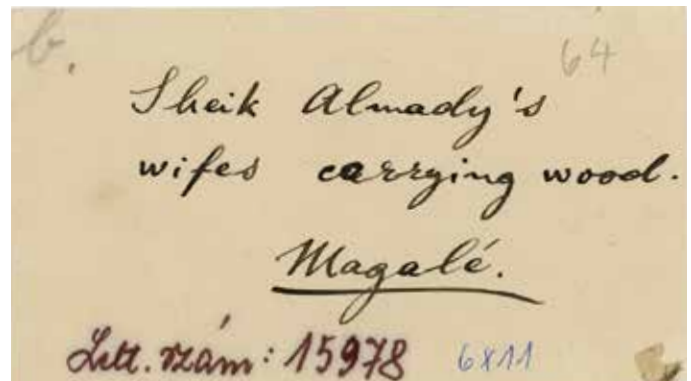 b. 64
Sheik Almady's
wifes carrying wood.
Magalé.
Lelt. szám: 15978 6x11